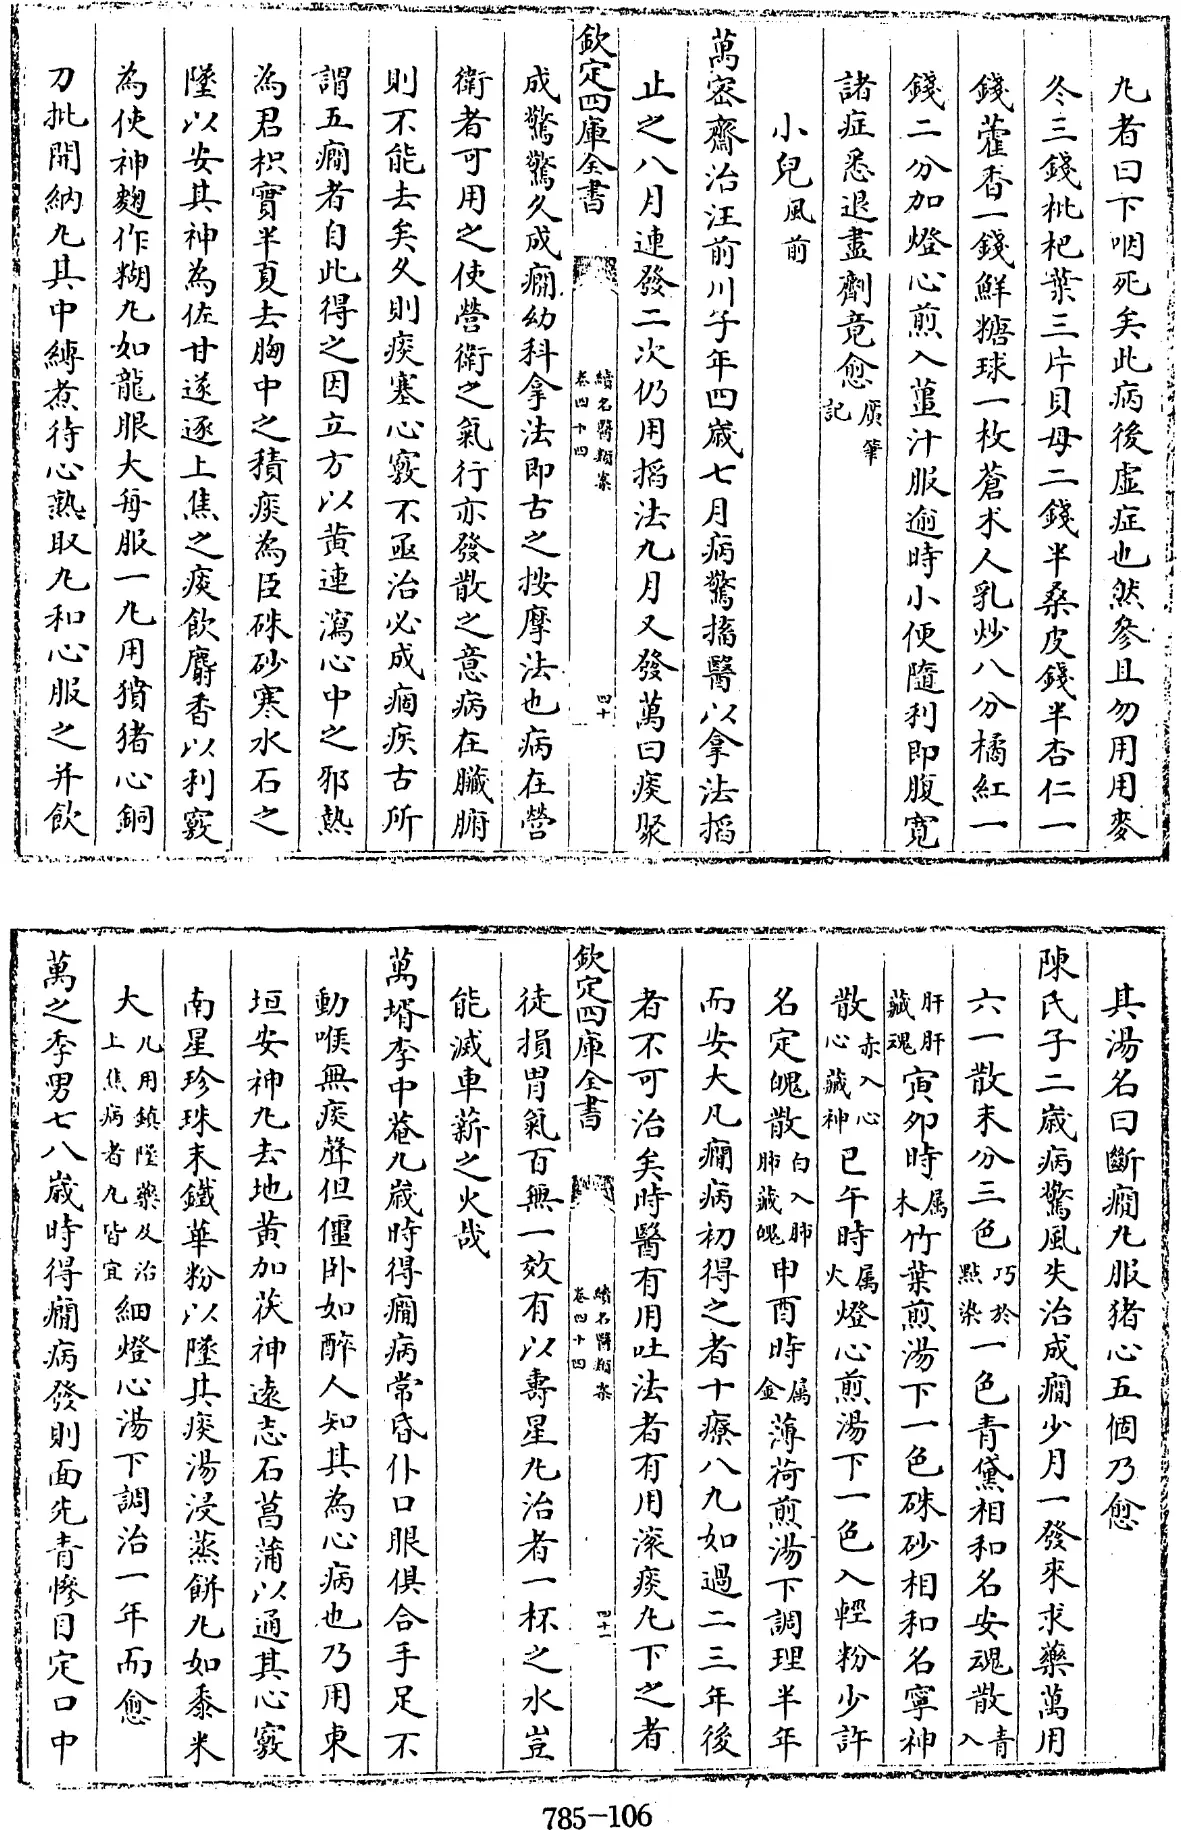 凢者曰下咽死矣此病後虛症也然參且勿用用麥
冬三錢枇杷葉三片貝母二錢半桑皮錢半杏仁一
錢藿香一錢鮮糖球一枚蒼术人乳炒八分橘紅一
錢二分加燈心煎入薑汁服逾時小便隨利即腹寛
諸症悉退盡劑竟愈廣筆記
小兒風前
萬密齋治汪前川子年四歲七月病驚搐醫以拿法搯
止之八月連發二次仍用搯法九月又發萬曰痰聚
欽定四庫全書 續名醫類案卷四十四 四十
成驚驚久成癇幼科拿法即古之按摩法也病在營
衛者可用之使營衛之氣行亦發散之意病在臟腑
則不能去矣久則痰塞心竅不亟治必成痼疾古所
謂五癇者自此得之因立方以黄連瀉心中之邪熱
為君枳實半夏去胸中之積痰為臣硃砂寒水石之
墜以安其神為佐甘遂逐上焦之痰飲麝香以利竅
為使神麴作糊凡如龍眼大每服一凡用猪猪心銅
刀批開納凡其中縛煮待心熟取凡和心服之并飲
其湯名曰斷癇凡服猪心五個乃愈
陳氏子二歲病驚風失治成癇少月一發來求藥萬用
六一散末分三色巧於點染一色青黛相和名安魂散青入
肝肝藏魂寅夘時属木竹葉煎湯下一色硃砂相和名寧神
散赤入心心藏神巳午時属火燈心煎湯下一色入輕粉少許
名定魄散白入肺肺藏魄申酉時属金薄荷煎湯下調理半年
而安大凡癇病初得之者十療八九如過二三年後
者不可治矣時醫有用吐法者有用滚痰凡下之者
欽定四庫全書 續名醫類案卷四十四 四十一
徒損胃氣百無一效有以壽星凡治者一杯之水豈
能滅車薪之火哉
萬壻李中菴九歲時得癇病常昏仆口眼俱合手足不
動喉無痰聲但僵卧如醉人知其為心病也乃用東
垣安神凡去地黄加茯神遠志石菖蒲以通其心竅
南星珍珠末鐵華粉以墜其痰湯浸蒸餅凡如黍米
大凡用鎮墜藥及治上焦病者凡皆宜細燈心湯下調治一年而愈
萬之季男七八歲時得癇病發則面先青慘目定口中
785-106